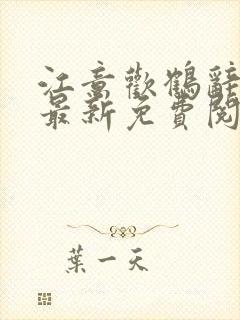 江意歡鶴辭
最新免費閱
葉一天